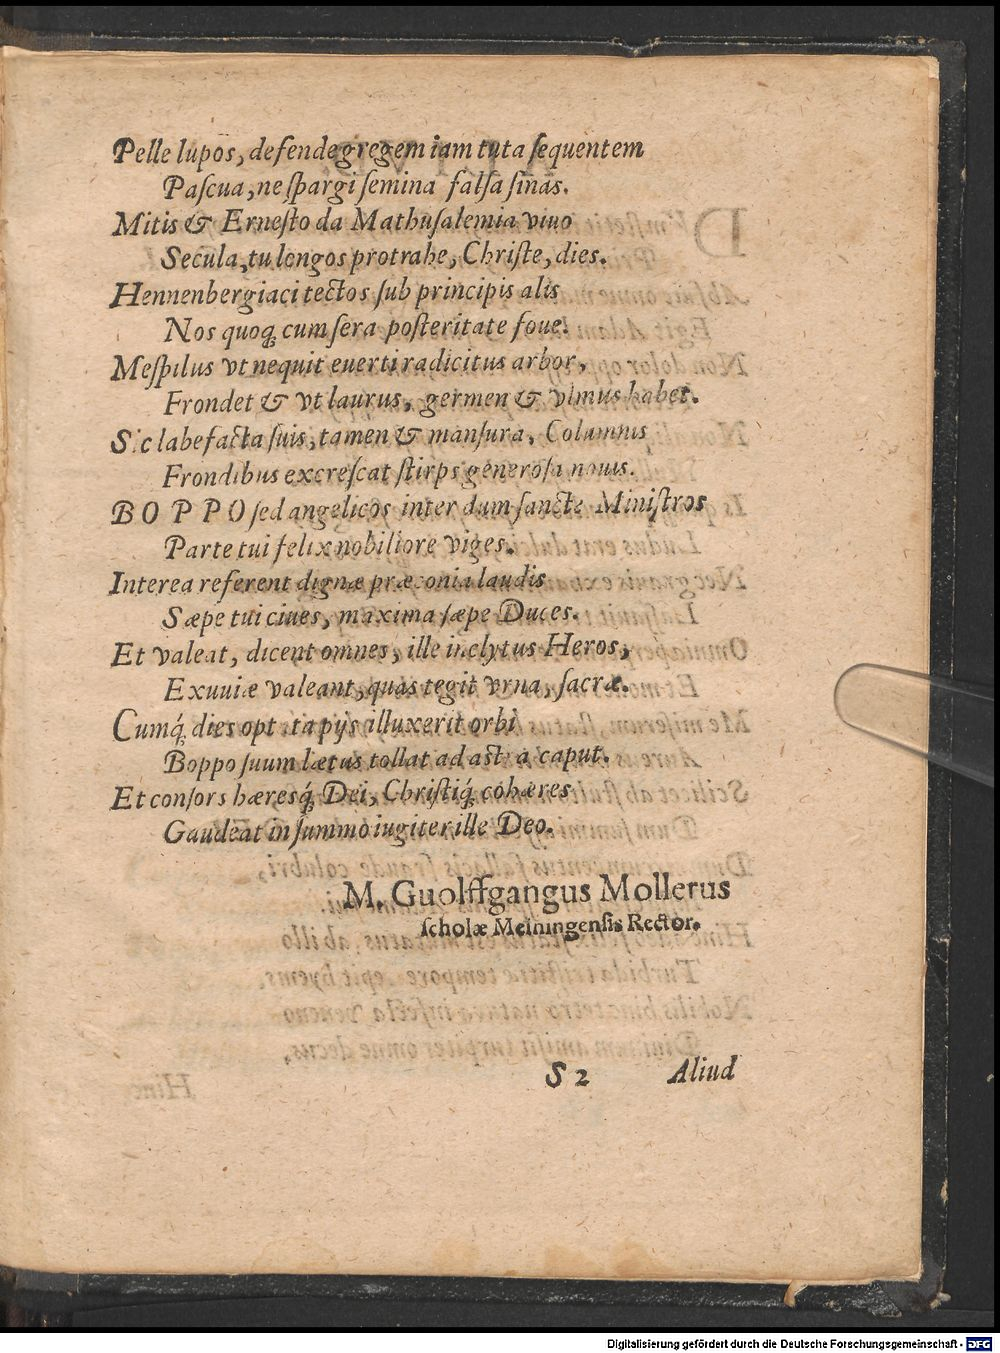 Pelle lupos, defende gregem iam tuta ſequentem
Paſcua, ne ſpargi ſemina falſa ſinas.
Mitis & Erneſto da Mathuſalemia viuo
Secula, tu longos protrahe, Chriſte, dies.
Hennenbergiaci tectos ſub principis alis
Nos quoq́; cum ſera poſteritate foue.
Meſpilus vt nequit euerti radicitus arbor,
Frondet & vt laurus, germen & vlmus habet.
Sic labefacta ſuis, tamen & manſura, Columnis
Frondibus excreſcat ſtirps generoſa nouis.
BOPPO ſed angelicos inter dum ſancte Miniſtros
Parte tui felix nobiliore viges.
Interea referent dignæ præconia laudis
Sæpe tui ciues, maxima ſæpe Duces.
Et valeat, dicent omnes, ille inclytus Heros,
Exuuiæ valeant, quas tegit vrna, ſacræ.
Cumq́; dies optata pijs illuxerit orbi
Boppo ſuum lætus tollat ad aſtra caput.
Et conſors hæresq́; Dei, Chriſtiq́; cohæres
Gaudeat in ſummo iugiter ille Deo.
M. Guolffgangus Mollerus
ſcholæ Meiningenſis Rector.
S 2 Aliud
Digitalisierung gefördert durch die Deutsche Forschungsgemeinschaft - DFG